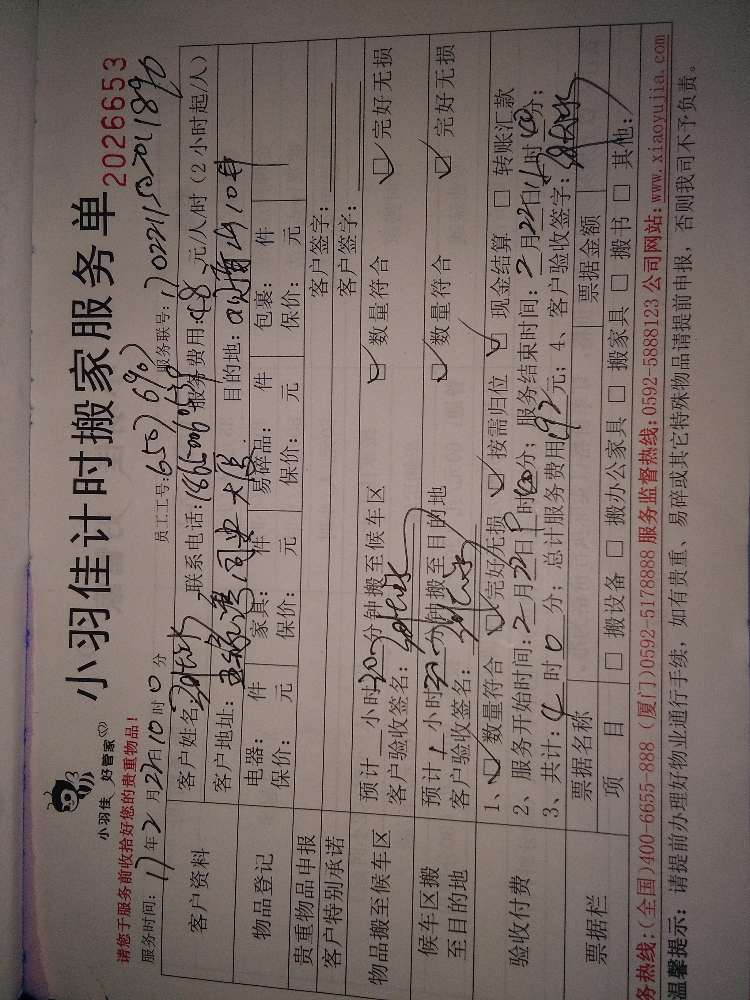 小羽佳计时搬家服务单
2026653
小羽佳 好管家
请您于服务前收拾好您的贵重物品!
服务时间:17年2月22日10时0分 员工工号:650769 服务联号:
客户资料 客户姓名: 联系电话: 服务费用:48元/人/时(2小时起/人)
客户地址: 目的地:
物品登记 电器: 件 家具: 件 易碎品: 件 包裹: 件
保价: 元 保价: 元 保价: 元 保价: 元
贵重物品申报 客户签字:
客户特别承诺 客户签字:
物品搬至候车区 预计 小时30分钟搬至候车区 数量符合 完好无损
客户验收签名:
候车区搬至目的地 预计1小时 分钟搬至目的地 数量符合 完好无损
客户验收签名:
验收付费 1、数量符合 完好无损 按需归位 现金结算 转账汇款
2、服务开始时间:2月22日 时00分;服务结束时间:2月22日 时00分;
3、共计:4时0分;总计服务费用192元;4、客户验收签字:
票据栏 票据名称 票据金额
项目 搬设备 搬办公家具 搬家具 搬书 其他:
务热线:(全国)400-6655-888 (厦门)0592-5178888 服务监督热线:0592-5888123 公司网站:www.xiaoyujia.com
温馨提示:请提前办理好物业通行手续,如有贵重、易碎或其它特殊物品请提前申报,否则我司不予负责。